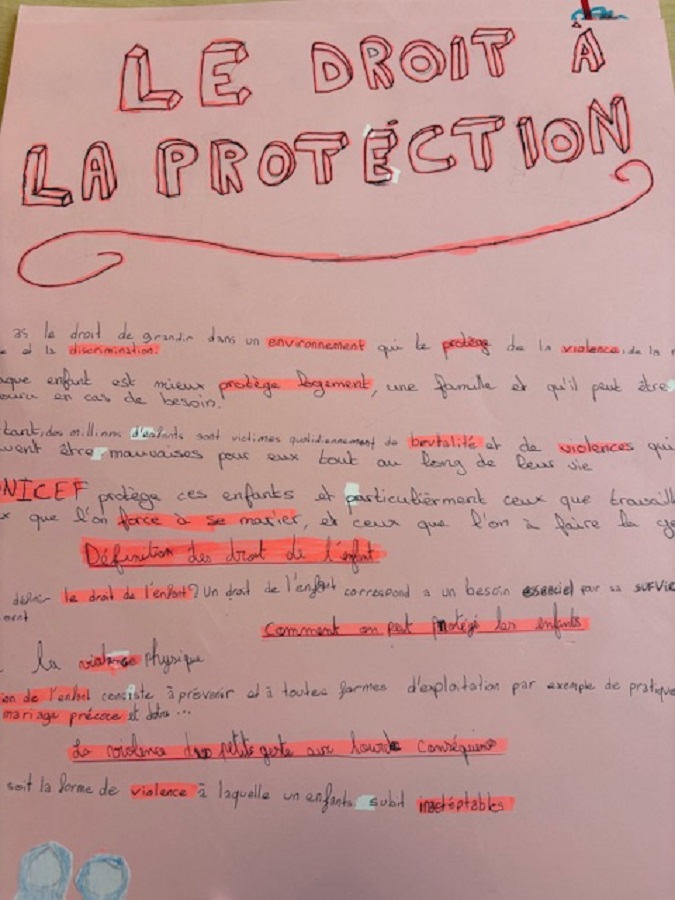 LE DROIT À
LA PROTÉCTION
as le droit de grandir dans un environnement qui te protège de la violence, de la
et la discrimination.
que enfant est mieux protège logement, une famille et qu'il peut être
en cas de besoin.
tant, des millions d'enfants sont victimes quotidiennement de brutalité et de violences qui
vent être mauvaises pour eux tout au long de leur vie
NICEF protège ces enfants et particulièrment ceux que travaill
x que l'on force à se marier, et ceux que l'on à faire la
Définition des droit de l'enfant
définir le droit de l'enfant? Un droit de l'enfant correspond a un besoin esenciel par sa survie
ment
Comment on peut protégé les enfants
la violence physique
ion de l'enfant consiste à prévenir et à toutes formes d'exploitation par exemple de pratique
mariage précoce et dotre ...
La violence des petits geste aux lourde conséquens
soit la forme de violence à laquelle un enfants subit